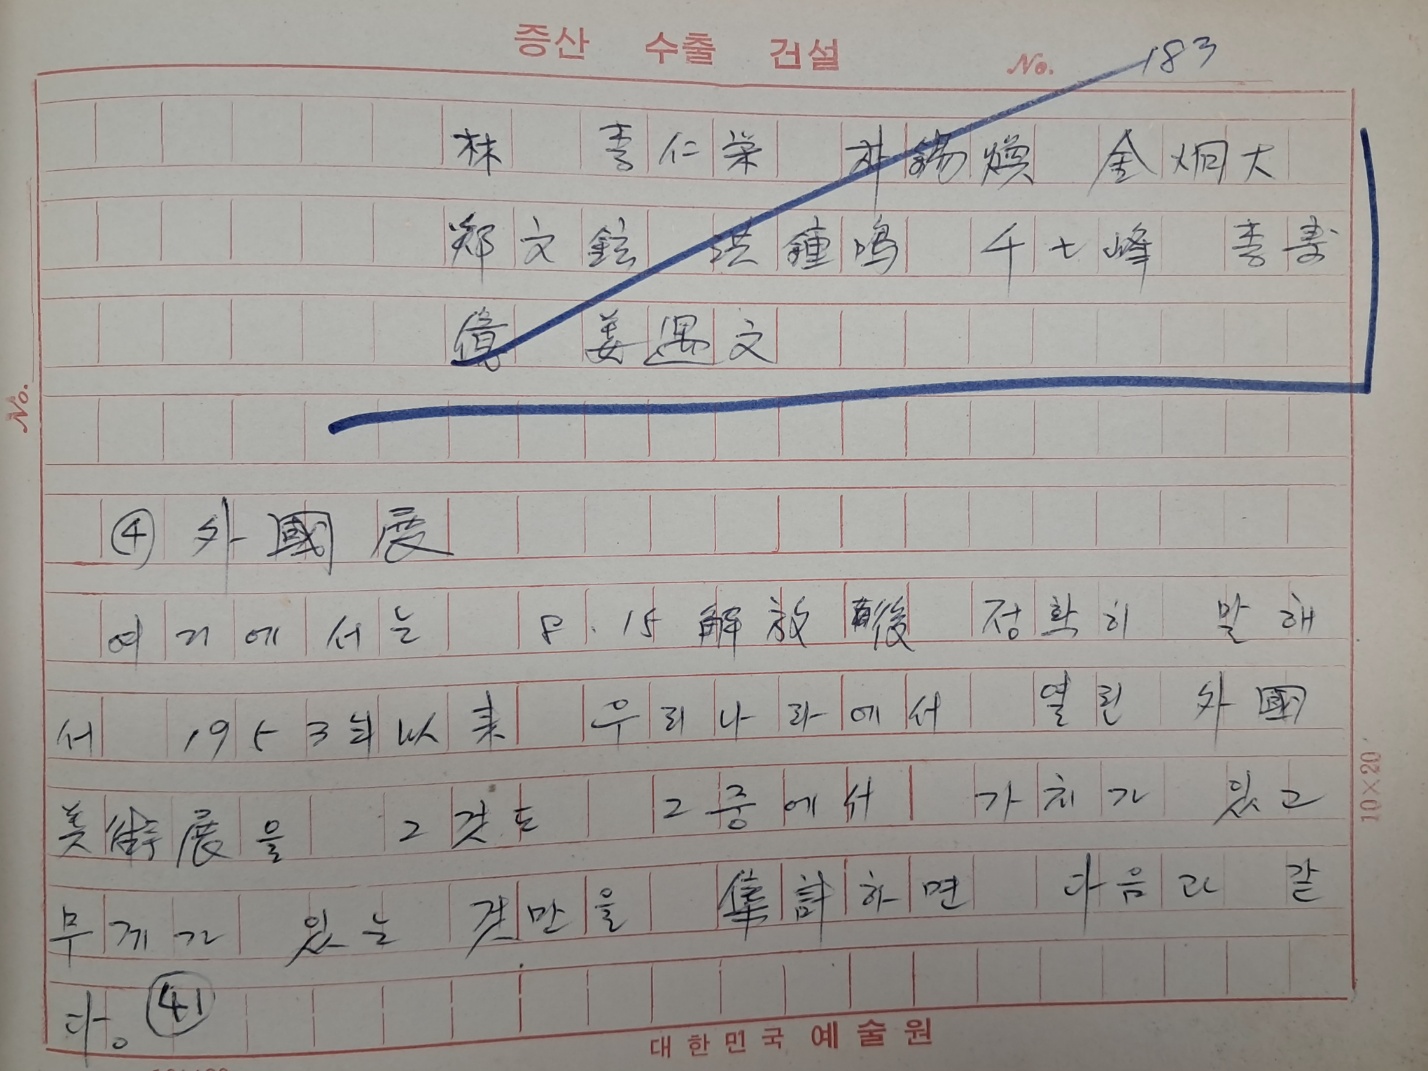 증산 수출 건설 No. 183
林 李仁榮 朴錫煥 金炯大
鄭文鉉 洪鍾鳴 千七峰 李壽
億 姜遇文
No.
④ 外國展
여기에서는 8.15解放後 정확히 말해
서 1953年以来 우리나라에서 열린 外國
美術展을 그것도 그중에서 가치가 있고
무게가 있는 것만을 集計하면 다음과 같
다。 ㊶
10×20
대한민국 예술원